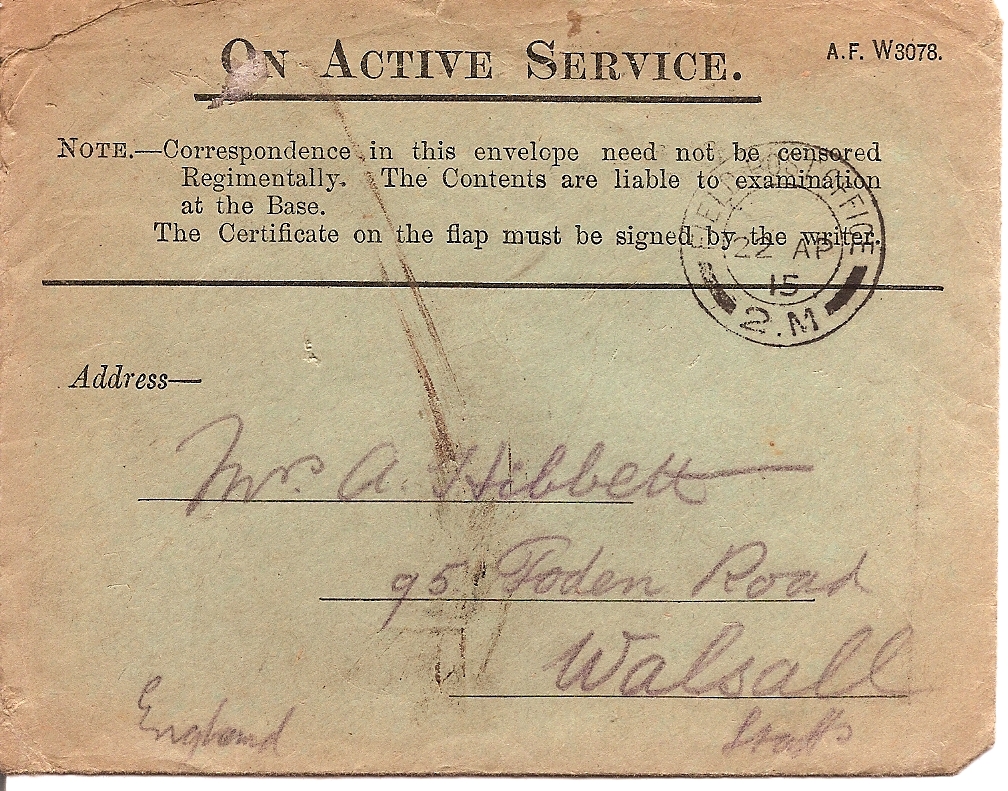 ON ACTIVE SERVICE.
A.F. W3078.
NOTE.—Correspondence in this envelope need not be censored
Regimentally. The Contents are liable to examination
at the Base.
The Certificate on the flap must be signed by the writer.
FIELD POST OFFICE
22 AP
15
2.M
Address—
Mr. A. Hibbett
95 Foden Road
Walsall
England
Staffs